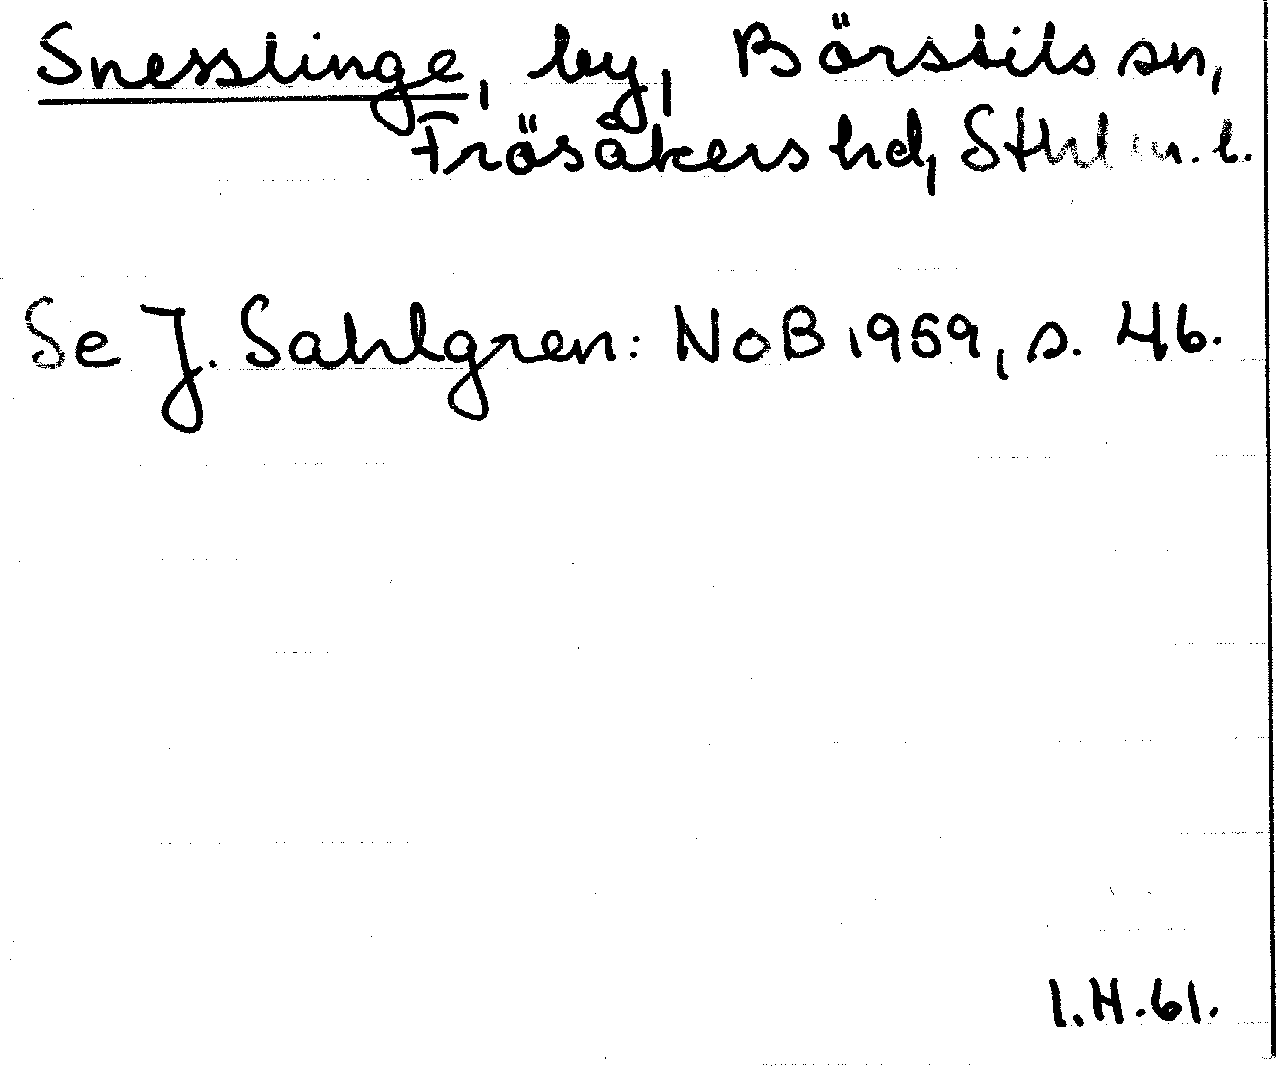 Snesslinge, by, Börstils sn,
Frösåkers hd, Sthlm. l.
Se J. Sahlgren: NoB 1959, s. 46.
I.H.61.